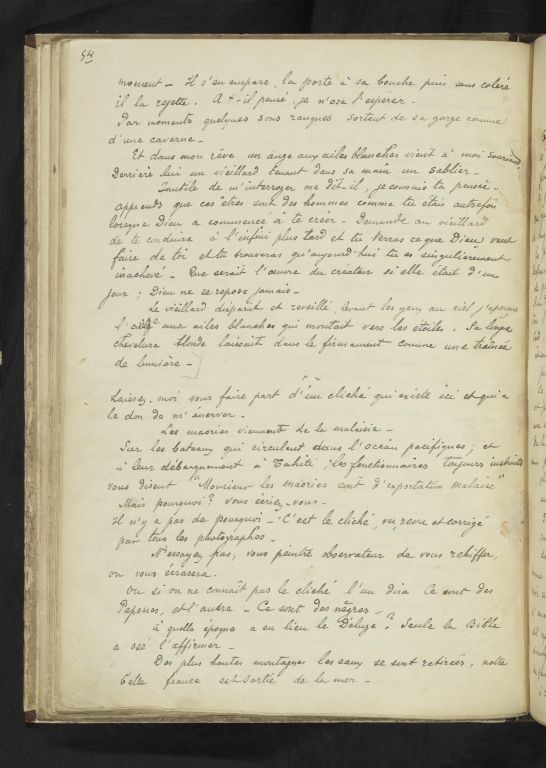 54
moment _ Il s'en empare, la porte à sa bouche puis sans colère
il la rejette. A t-il pensé, je n'ose l'espérer.
Par moments quelques sons rauques sortent de sa gorge comme
d'une caverne _
Et dans mon rêve un ange aux ailes blanches vient à moi souriant.
Derrière lui un vieillard tenant dans sa main un sablier _
Inutile de m'interroger me dit-il, je connais ta pensée _
apprends que ces êtres sont des hommes comme tu étais autrefois
lorsque Dieu a commencé à te créer _ Demande au vieillard
de te conduire à l'infini plus tard et tu verras ce que Dieu veut
faire de toi et tu trouveras qu'aujourd'hui tu es singulièrement
inachevé _ Que serait l'œuvre du créateur si elle était d'un
jour ; Dieu ne se repose jamais _
Le vieillard disparut et reveillé, levant les yeux au ciel j'aperçus
l'ange aux ailes blanches qui montait vers les étoiles. Sa longue
chevelure blonde laissait dans le firmament comme une traînée
de lumière _
Laissez-moi vous faire part d'un cliché qui existe ici et qui a
le don de m'énerver _
Les maories viennent de la malaisie _
Sur les bateaux qui circulent dans l'océan pacifiques, et
à leur débarquement à Tahiti, les fonctionnaires toujours instruits
vous disent "Monsieur les maories sont d'exportation malaise"
Mais pourquoi ? vous écriez-vous _
Il n'y a pas de pourquoi _ C'est le cliché, vu revu et corrigé
par tous les photographes _
N'essayez pas, vous peintre observateur de vous rebiffer,
on vous écrasera.
Ou si on ne connaît pas le cliché l'un dira Ce sont des
Papous, et l'autre _ Ce sont des nègres _
à quelle époque a eu lieu le Déluge ? Seule la Bible
a osé l'affirmer _
Des plus hautes montagnes les eaux se sont retirées, notre
belle france est sortie de la mer _